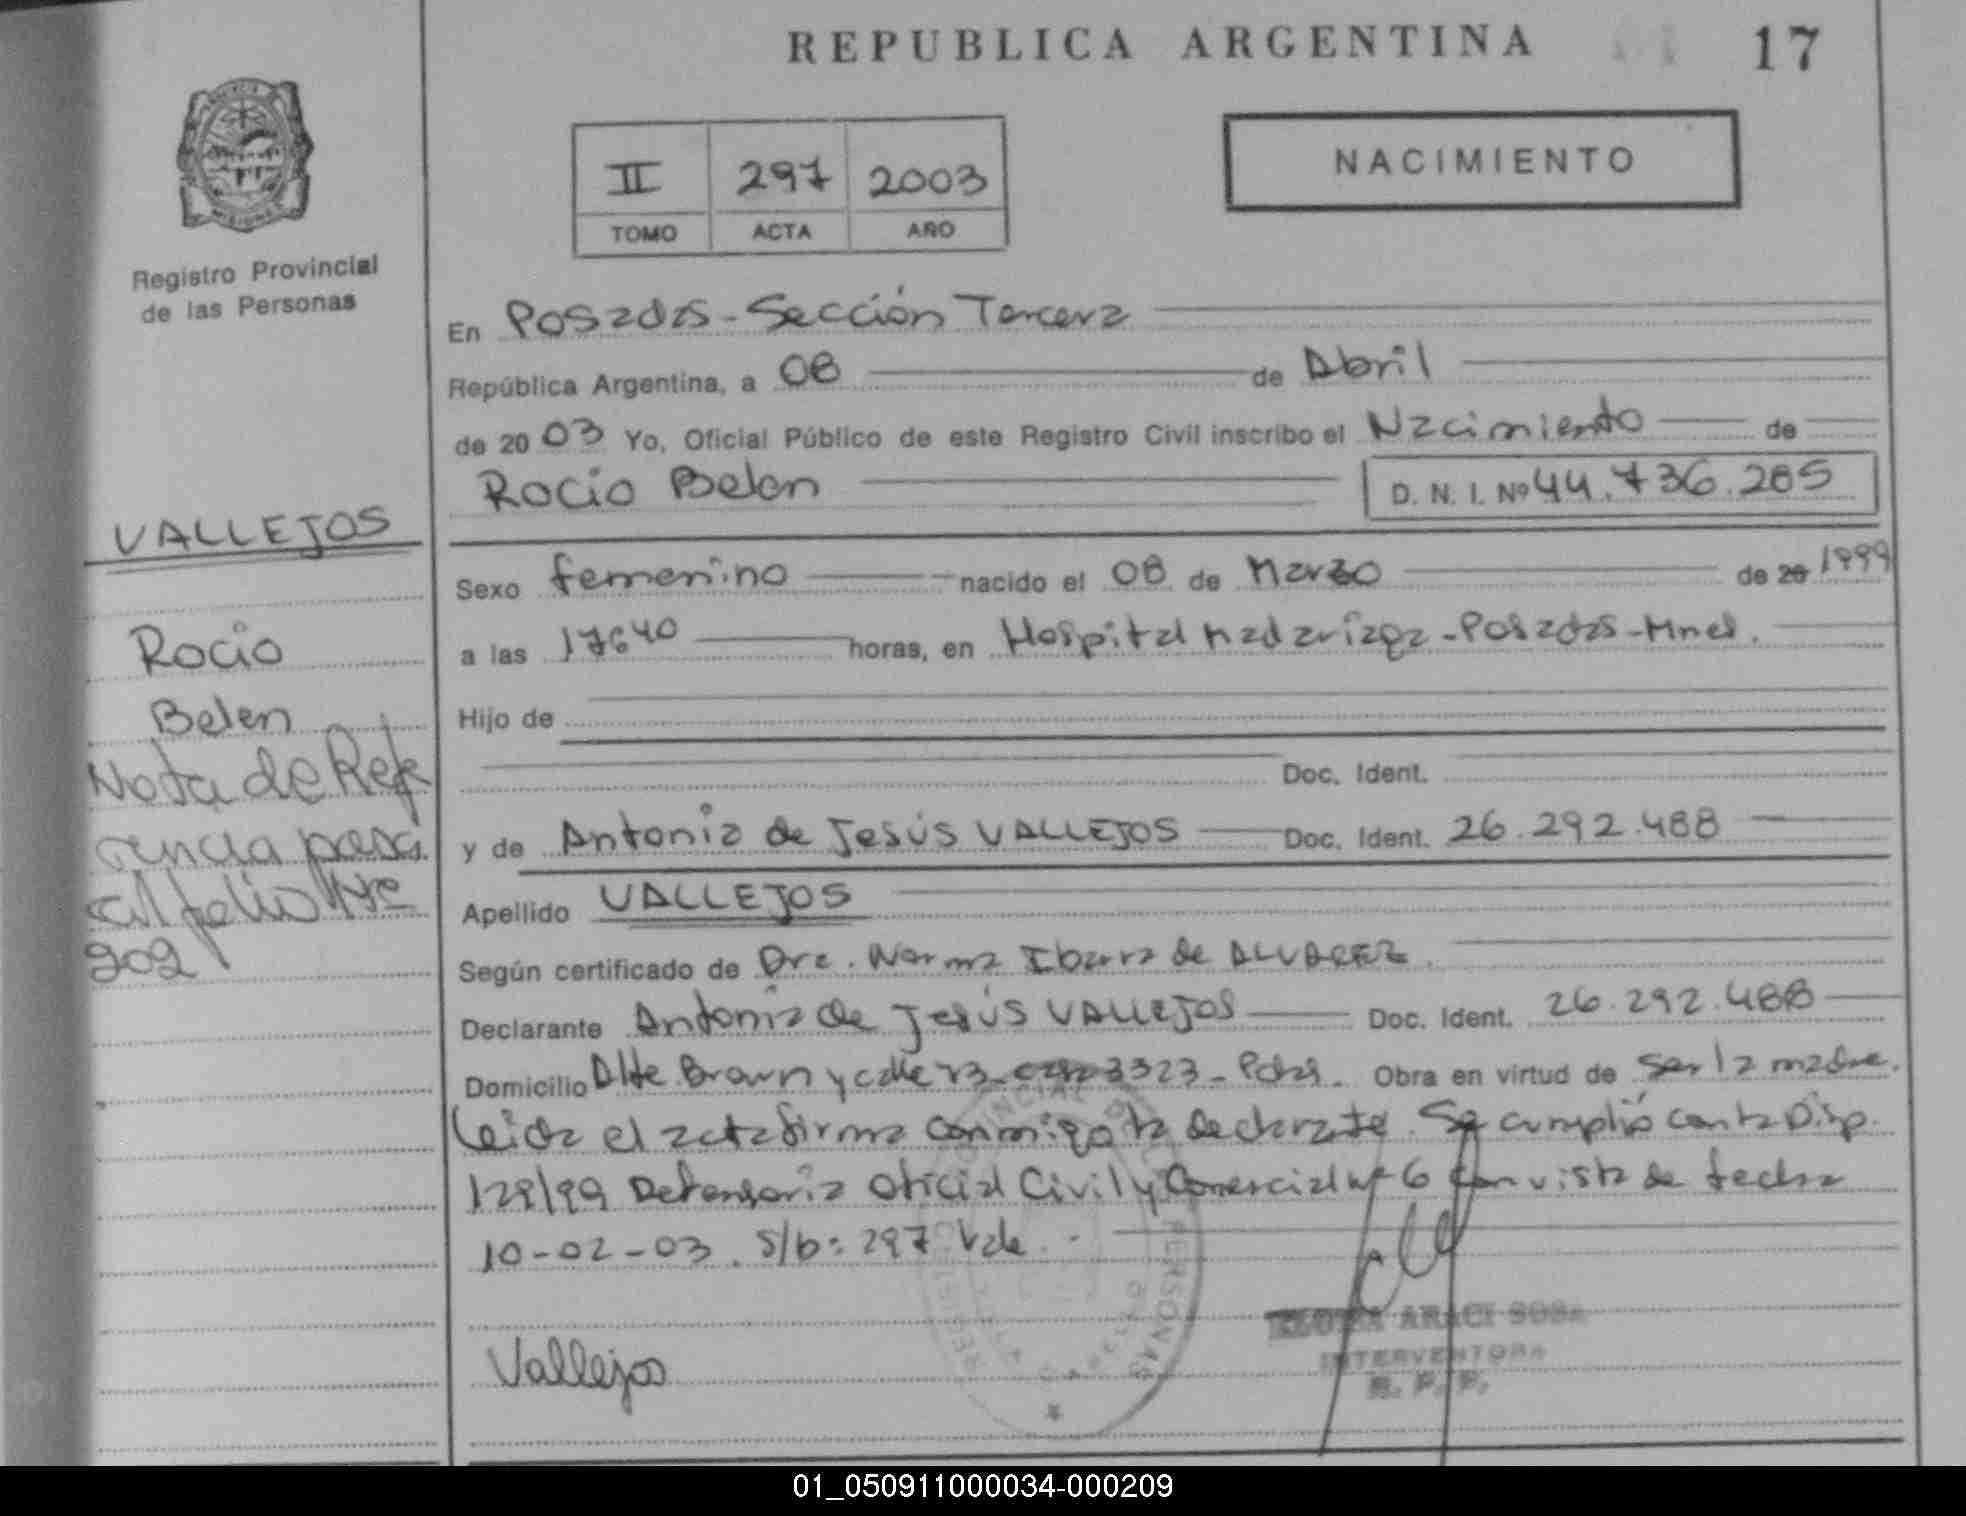 REPUBLICA ARGENTINA 17
II 297 2003
TOMO ACTA AÑO
NACIMIENTO
Registro Provincial
de las Personas
En Posadas - Sección Tercera
República Argentina, a 08 de Abril
de 2003 Yo, Oficial Público de este Registro Civil inscribo el Nacimiento de
Rocio Belen D. N. I. Nº 44.736.285
VALLEJOS
Rocio
Belen
Nota de Refe
rencia pasa
al folio Nº
202
Sexo femenino nacido el 08 de Marzo de 20 1999
a las 17640 horas, en Hospital Madariaga - Posadas - Mnes.
Hijo de
Doc. Ident.
y de Antonia de Jesús VALLEJOS Doc. Ident. 26.292.488
Apellido VALLEJOS
Según certificado de Dra. Norma Ibarra de ALVAREZ.
Declarante Antonia de Jesús VALLEJOS Doc. Ident. 26.292.488
Domicilio Alte. Brown y calle 3323 - Pdas. Obra en virtud de ser la madre.
Leida el acta firma conmigo la declarante. Se cumplió con la Disp.
129/99 Defensoria Oficial Civil y Comercial Nº 6 con vista de fecha
10-02-03. S/b: 297 Vale. -
Vallejos
ARACI SOSA
INTERVENTORA
R. P. P.
01_050911000034-000209